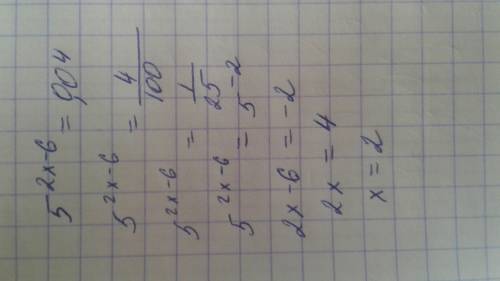 5^{2x-6} = 0,04
5^{2x-6} = \frac{4}{100}
5^{2x-6} = \frac{1}{25}
5^{2x-6} = 5^{-2}
2x-6 = -2
2x = 4
x = 2